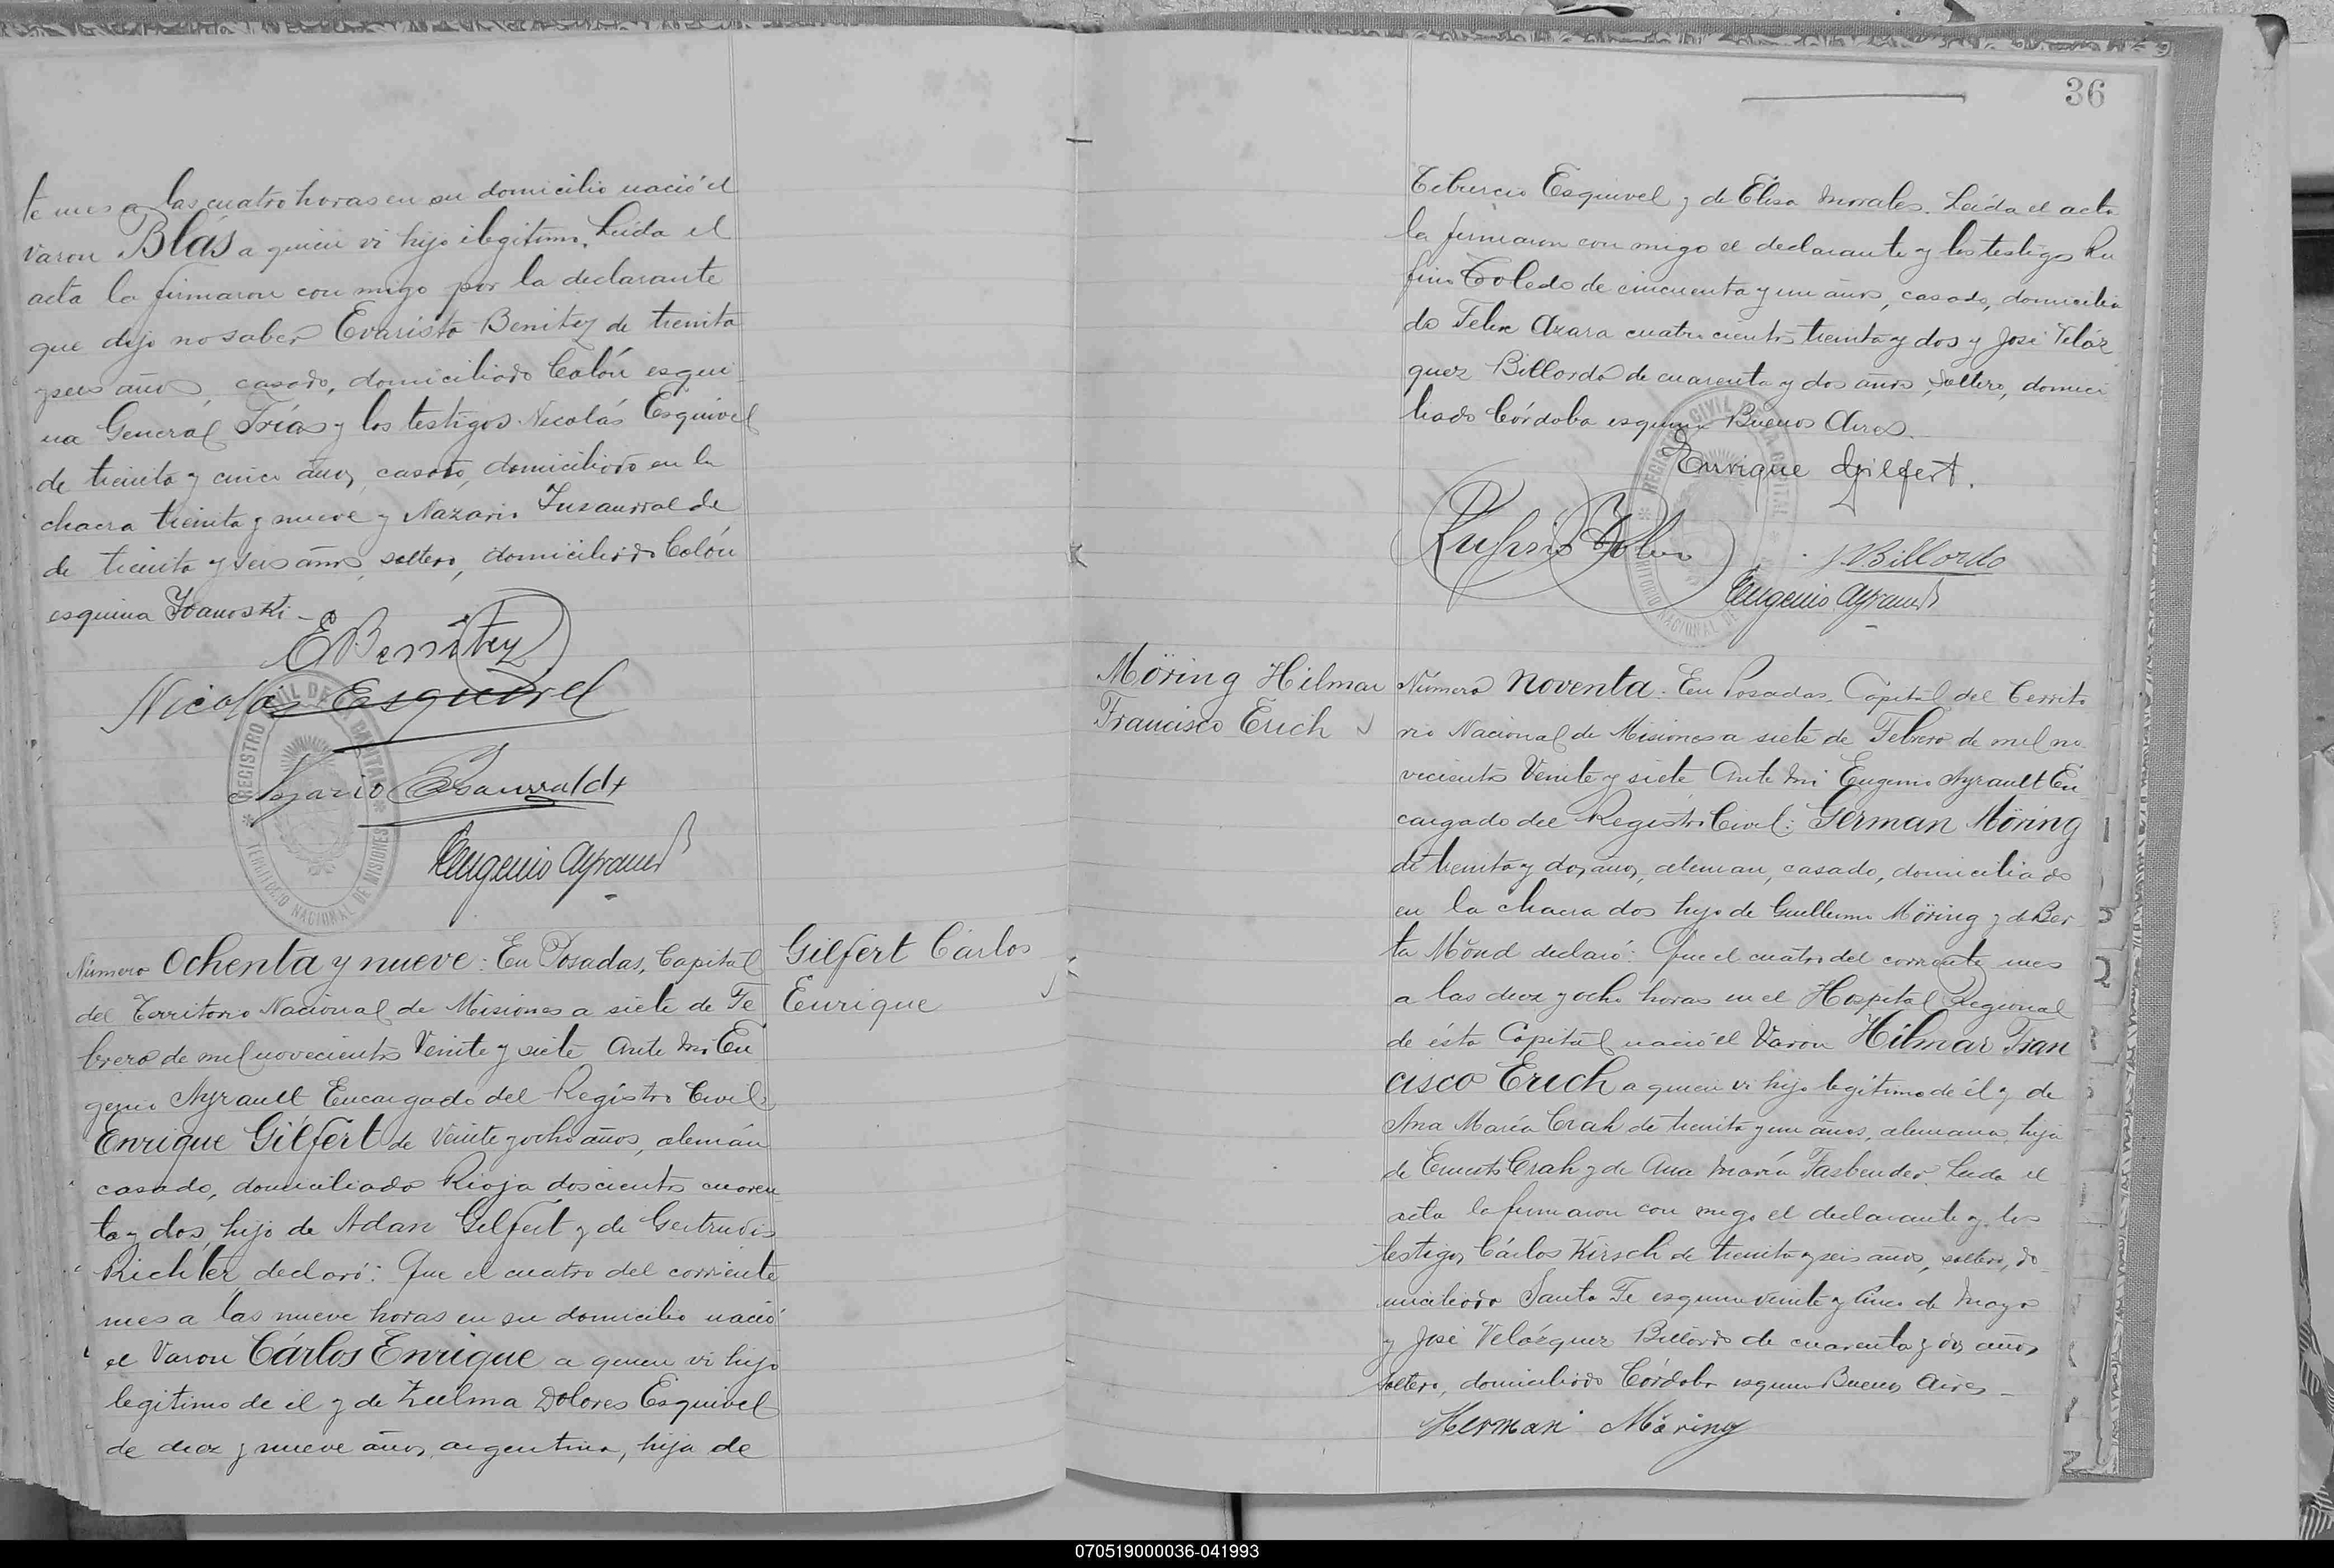 te mes a las cuatro horas en su domicilio nació el
varon Blás a quien vi hijo ilegitimo. Leida el
acta la firmaron con migo por la declarante
que dijo no saber Evaristo Benitez de treinta
y seis años, casado, domiciliado Colón esqui
na General Frías y los testigos Nicolás Esquivel
de treinta y cinco años, casado, domiciliado en la
chacra treinta y nueve y Nazario Insaurralde
de treinta y seis años, soltero, domiciliado Colón
esquina Ivanoski -
E Benitez
Nicolas Esquivel
REGISTRO CIVIL DE LA CAPITAL
TERRITORIO NACIONAL DE MISIONES
Número Ochenta y nueve: En Posadas, Capital
del Territorio Nacional de Misiones a siete de Fe
brero de mil novecientos Veinte y siete Ante Mi Eu
genio Ayrault Encargado del Registro Civil:
Enrique Gilfert de Veinte y ocho años, alemán
casado, domiciliado Rioja doscientos cuaren
ta y dos, hijo de Adan Gilfert y de Gertrudis
Richter, declaró: Que el cuatro del corriente
mes a las nueve horas en su domicilio nació
el Varon Cárlos Enrique a quien vi hijo
legitimo de él y de Zulma Dolores Esquivel
de diez y nueve años, argentina, hija de
Gilfert Cárlos
Enrique
36
Tiburcio Esquivel y de Elisa Morales. Leída el acta
la firmaron con migo el declarante y los testigos Ru
fino Toledo de cincuenta y un años, casado, domicilia
do Felix Azara cuatrocientos treinta y dos y José Veláz
quez Billordo de cuarenta y dos años, soltero, domici
liado Córdoba esquina Buenos Aires.
Enrique Gilfert.
J. Billordo
Eugenio Ayrault
REGISTRO CIVIL DE LA CAPITAL
TERRITORIO NACIONAL DE
Möring Hilmar
Francisco Erich
Número Noventa: En Posadas, Capital del Territo
rio Nacional de Misiones a siete de Febrero de mil no
vecientos Veinte y siete Ante Mi Eugenio Ayrault En
cargado del Registro Civil: German Möring
de treinta y dos años, aleman, casado, domiciliado
en la chacra dos hijo de Guillermo Möring y de Ber
ta Mönd declaró: Que el cuatro del corriente mes
a las diez y ocho horas en el Hospital Regional
de ésta Capital nació el Varon Hilmar Fran
cisco Erich a quien vi hijo legítimo de él y de
Ana María Crah de treinta y un años, alemana, hija
de Ernesto Crah y de Ana María Fasbender. Leida el
acta la firmaron con migo el declarante y los
testigos Cárlos Kirsch de treinta y seis años, soltero, do
miciliado Santa Fe esquina Veinte y Cinco de Mayo
y José Velázquez Billordo de cuarenta y dos años
soltero, domiciliado Córdoba esquina Buenos Aires -
Herman Möring
070519000036-041993